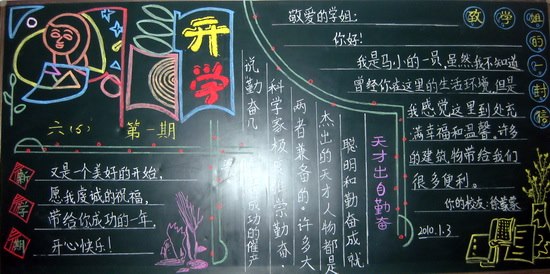 开学
六(5) 第一期
新学期
又是一个美好的开始，
愿我虔诚的祝福，
带给你成功的一年，
开心快乐！
天才出自勤奋
聪明和勤奋成就
杰出的天才人物都是
两者兼备的。许多大
科学家极 崇勤奋，
说勤奋几 成功的催产
致学姐的一封信
敬爱的学姐：
你好！
我是马小的一员，虽然我不知道
曾经你在这里的生活环境，但是
我感觉这里到处充
满幸福和温馨，许多
的建筑物带给我们
很多便利。
你的校友：徐
2010.1.3